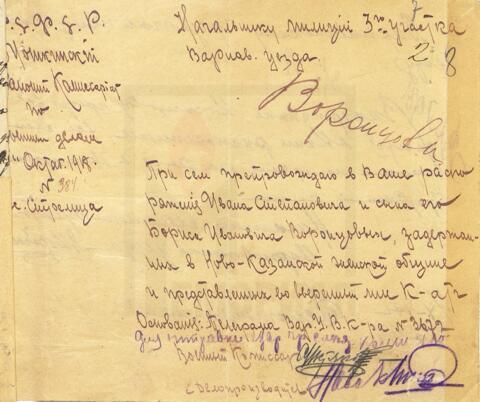 Р. С. Ф. С. Р.
Комиссариат
по
делам
Октяб. 1918.
N 384
с. Стрелица
Начальнику милиции 3го участка
Варнав. уезда.
2 8
Воронцова
При сем препровождаю в Ваше распо
ряжение Ивана Степановича и сына его
Бориса Ивановича Воронцовых, задержан-
ных в Ново-Казанской женской общине
и представленных во вверенный мне К-ат
Основание: Телеграма Вар. У. В. К-ра N 3672
для отправки
Военный Комиссар
Делопроизводитель